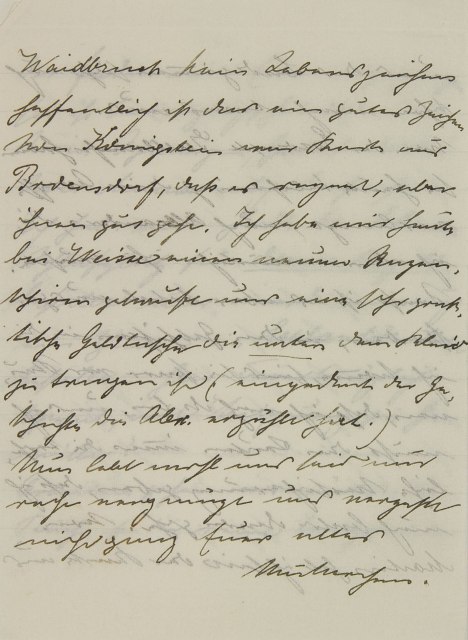 Waidbruck kein Lebenszeichen
hoffentlich ist das ein gutes Zeichen
Von Königstein eine Karte aus
Bodensdorf, daß es regnet, aber
ihnen gut gehe. Ich habe mir heute
bei Weisse einen neuen Regen-
schirm gekauft und eine sehr prak-
tische Geldtasche die unter dem Kleid
zu tragen ist (eingedenk der Ge-
schichte die Alex. erzählt hat.)
Nun lebt wohl und seid nur
recht vergnügt und vergeßt
nicht ganz Euer altes
Mutterchen.